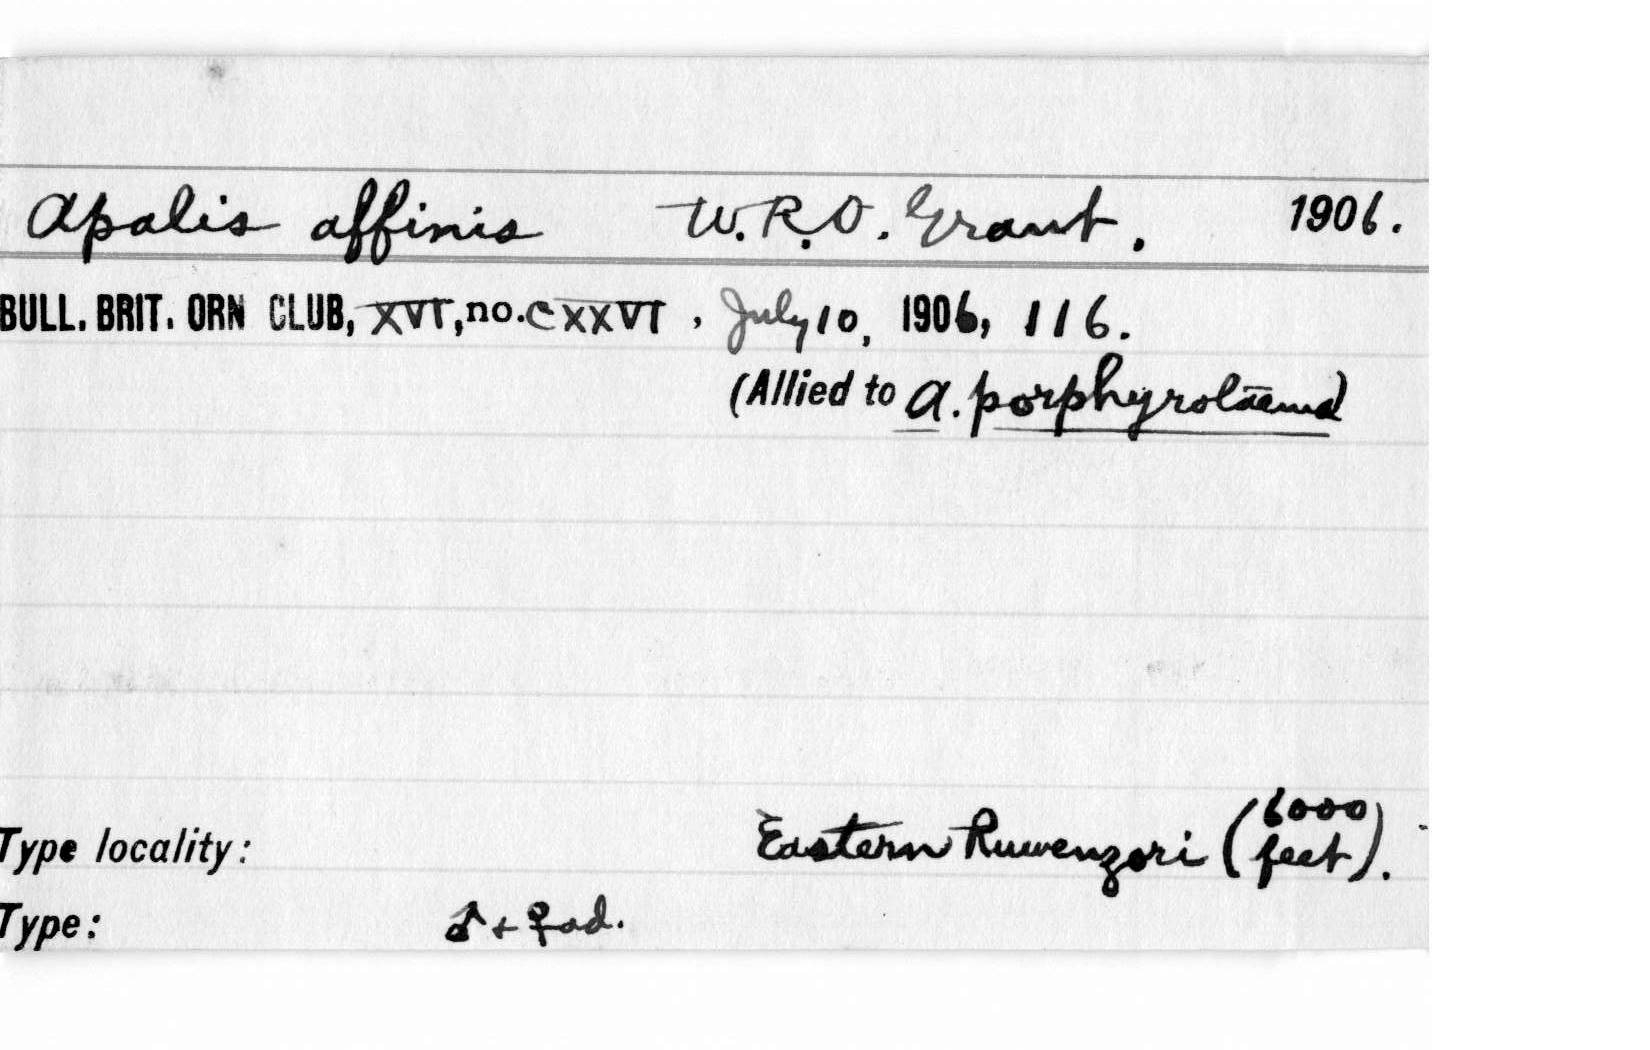 Apalis affinis W.R.O. Grant. 1906.
BULL. BRIT. ORN CLUB, XVI, no. CXXVI, July 10, 1906, 116.
(Allied to A. porphyrolaema)
Type locality: Eastern Ruwenzori (6000 feet).
Type: ♂ + ♀ ad.